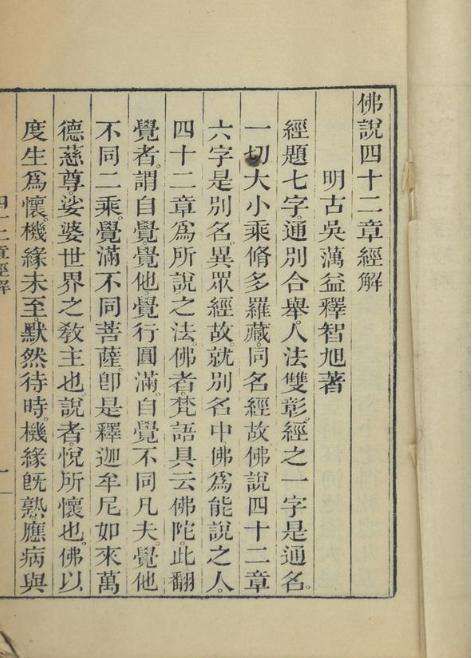 佛說四十二章經解
明古吳蕅益釋智旭著
經題七字通別合舉。人法雙彰。經之一字是通名。
一切大小乘脩多羅藏。同名經故。佛說四十二章
六字是別名。異眾經故。就別名中。佛爲能說之人。
四十二章爲所說之法。佛者梵語具云佛陀。此翻
覺者。謂自覺覺他覺行圓滿。自覺不同凡夫。覺他
不同二乘。覺滿不同菩薩。卽是釋迦牟尼如來萬
德慈尊娑婆世界之敎主也。說者悅所懷也。佛以
度生爲懷。機緣未至。默然待時。機緣旣熟。應病與
四十二章經解
一